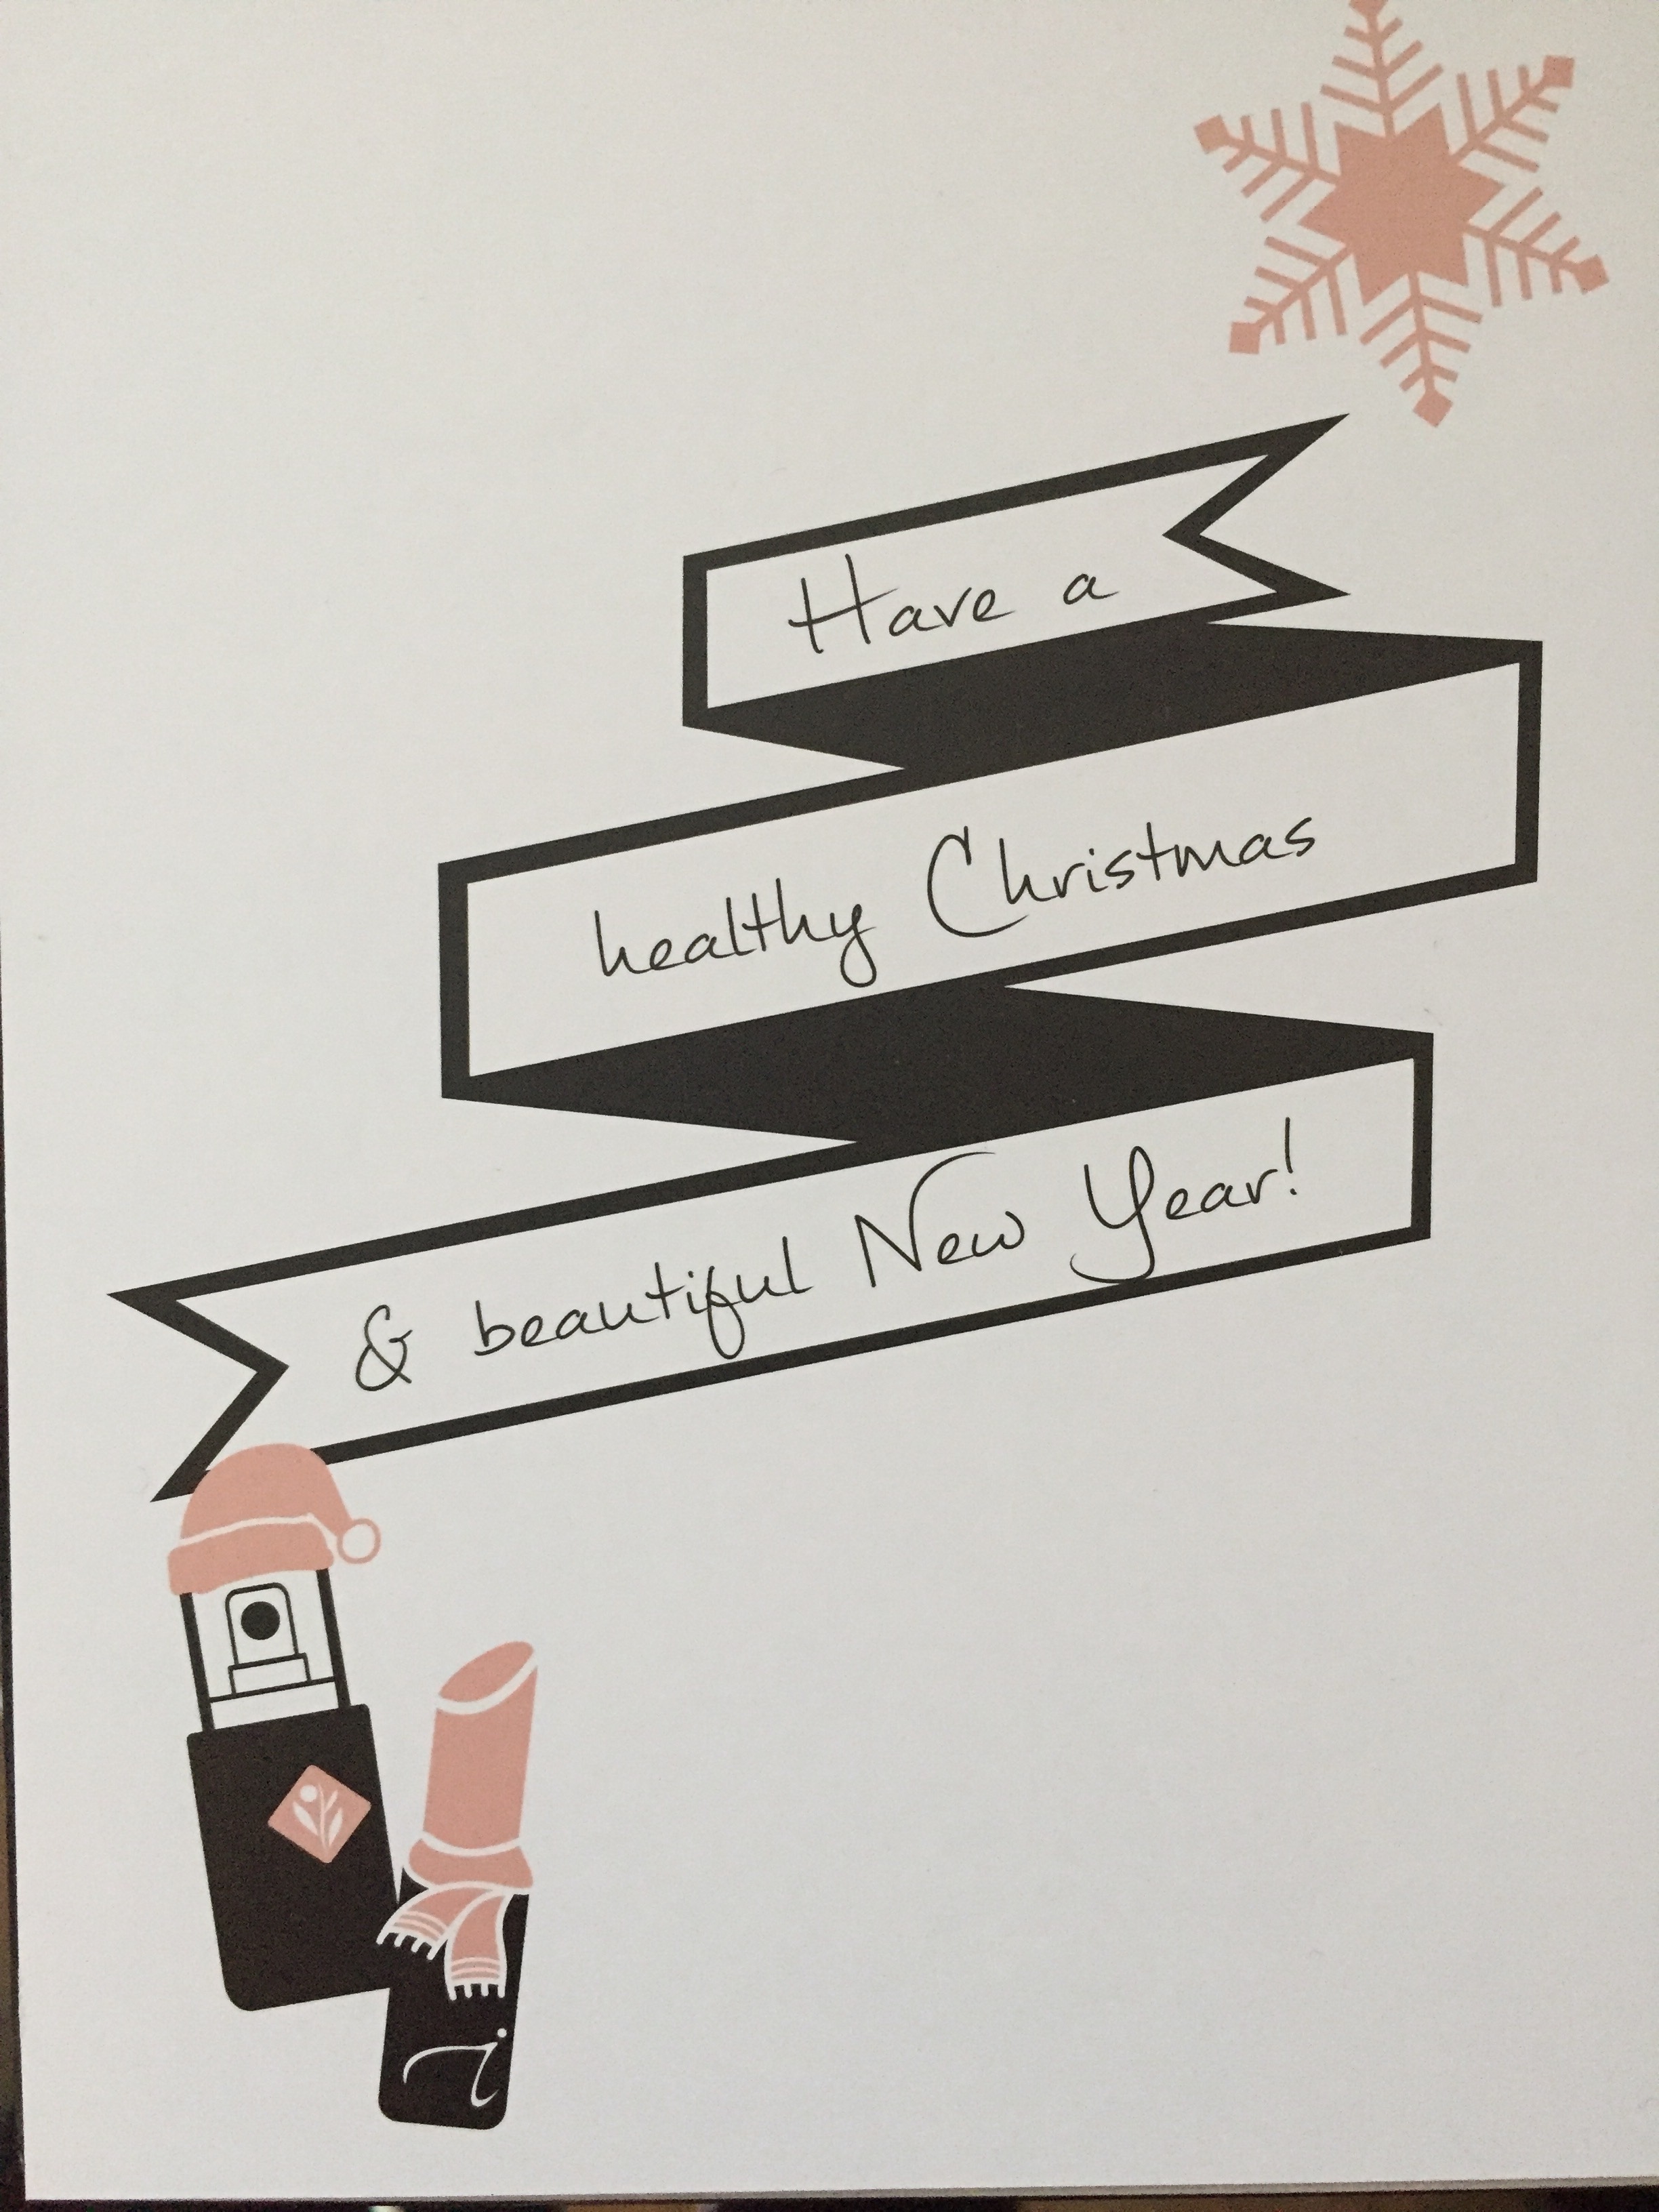 Have a
healthy Christmas
& beautiful New Year!
i